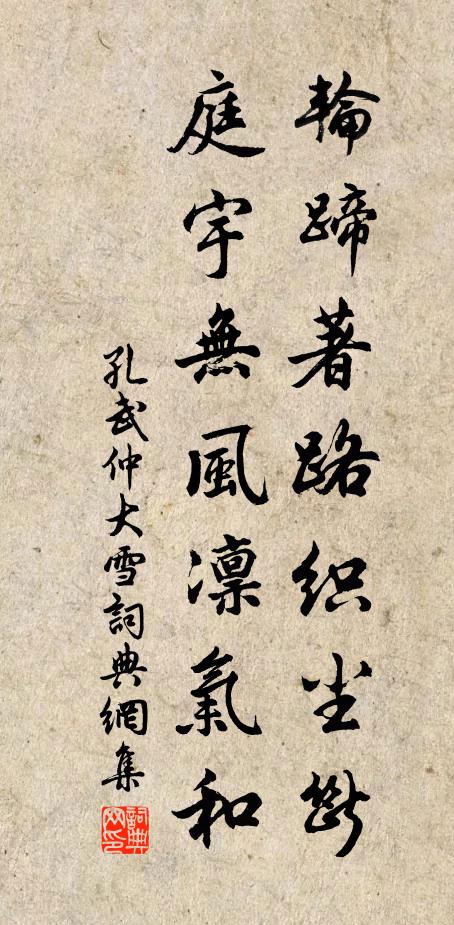 輪蹄著路织尘斷
庭宇無風凜氣和
孔武仲大雪詞典網集
詞典
网印